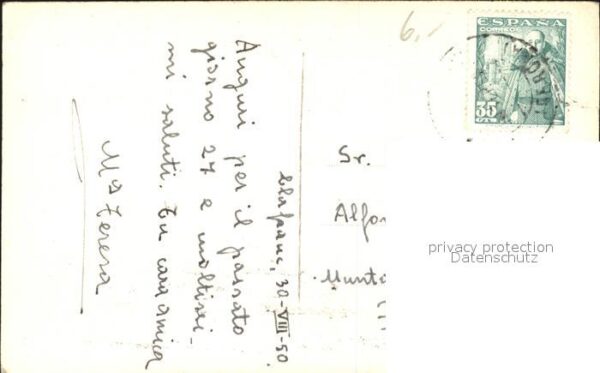 30-VIII-50
Auguri per il passato
giorno 27 e moltissi-
mi saluti. Tu cara amica
Mª Teresa
Sr.
Alfon
Munta
ESPAÑA
CORREOS
35
CTS
6.-
privacy protection
Datenschutz